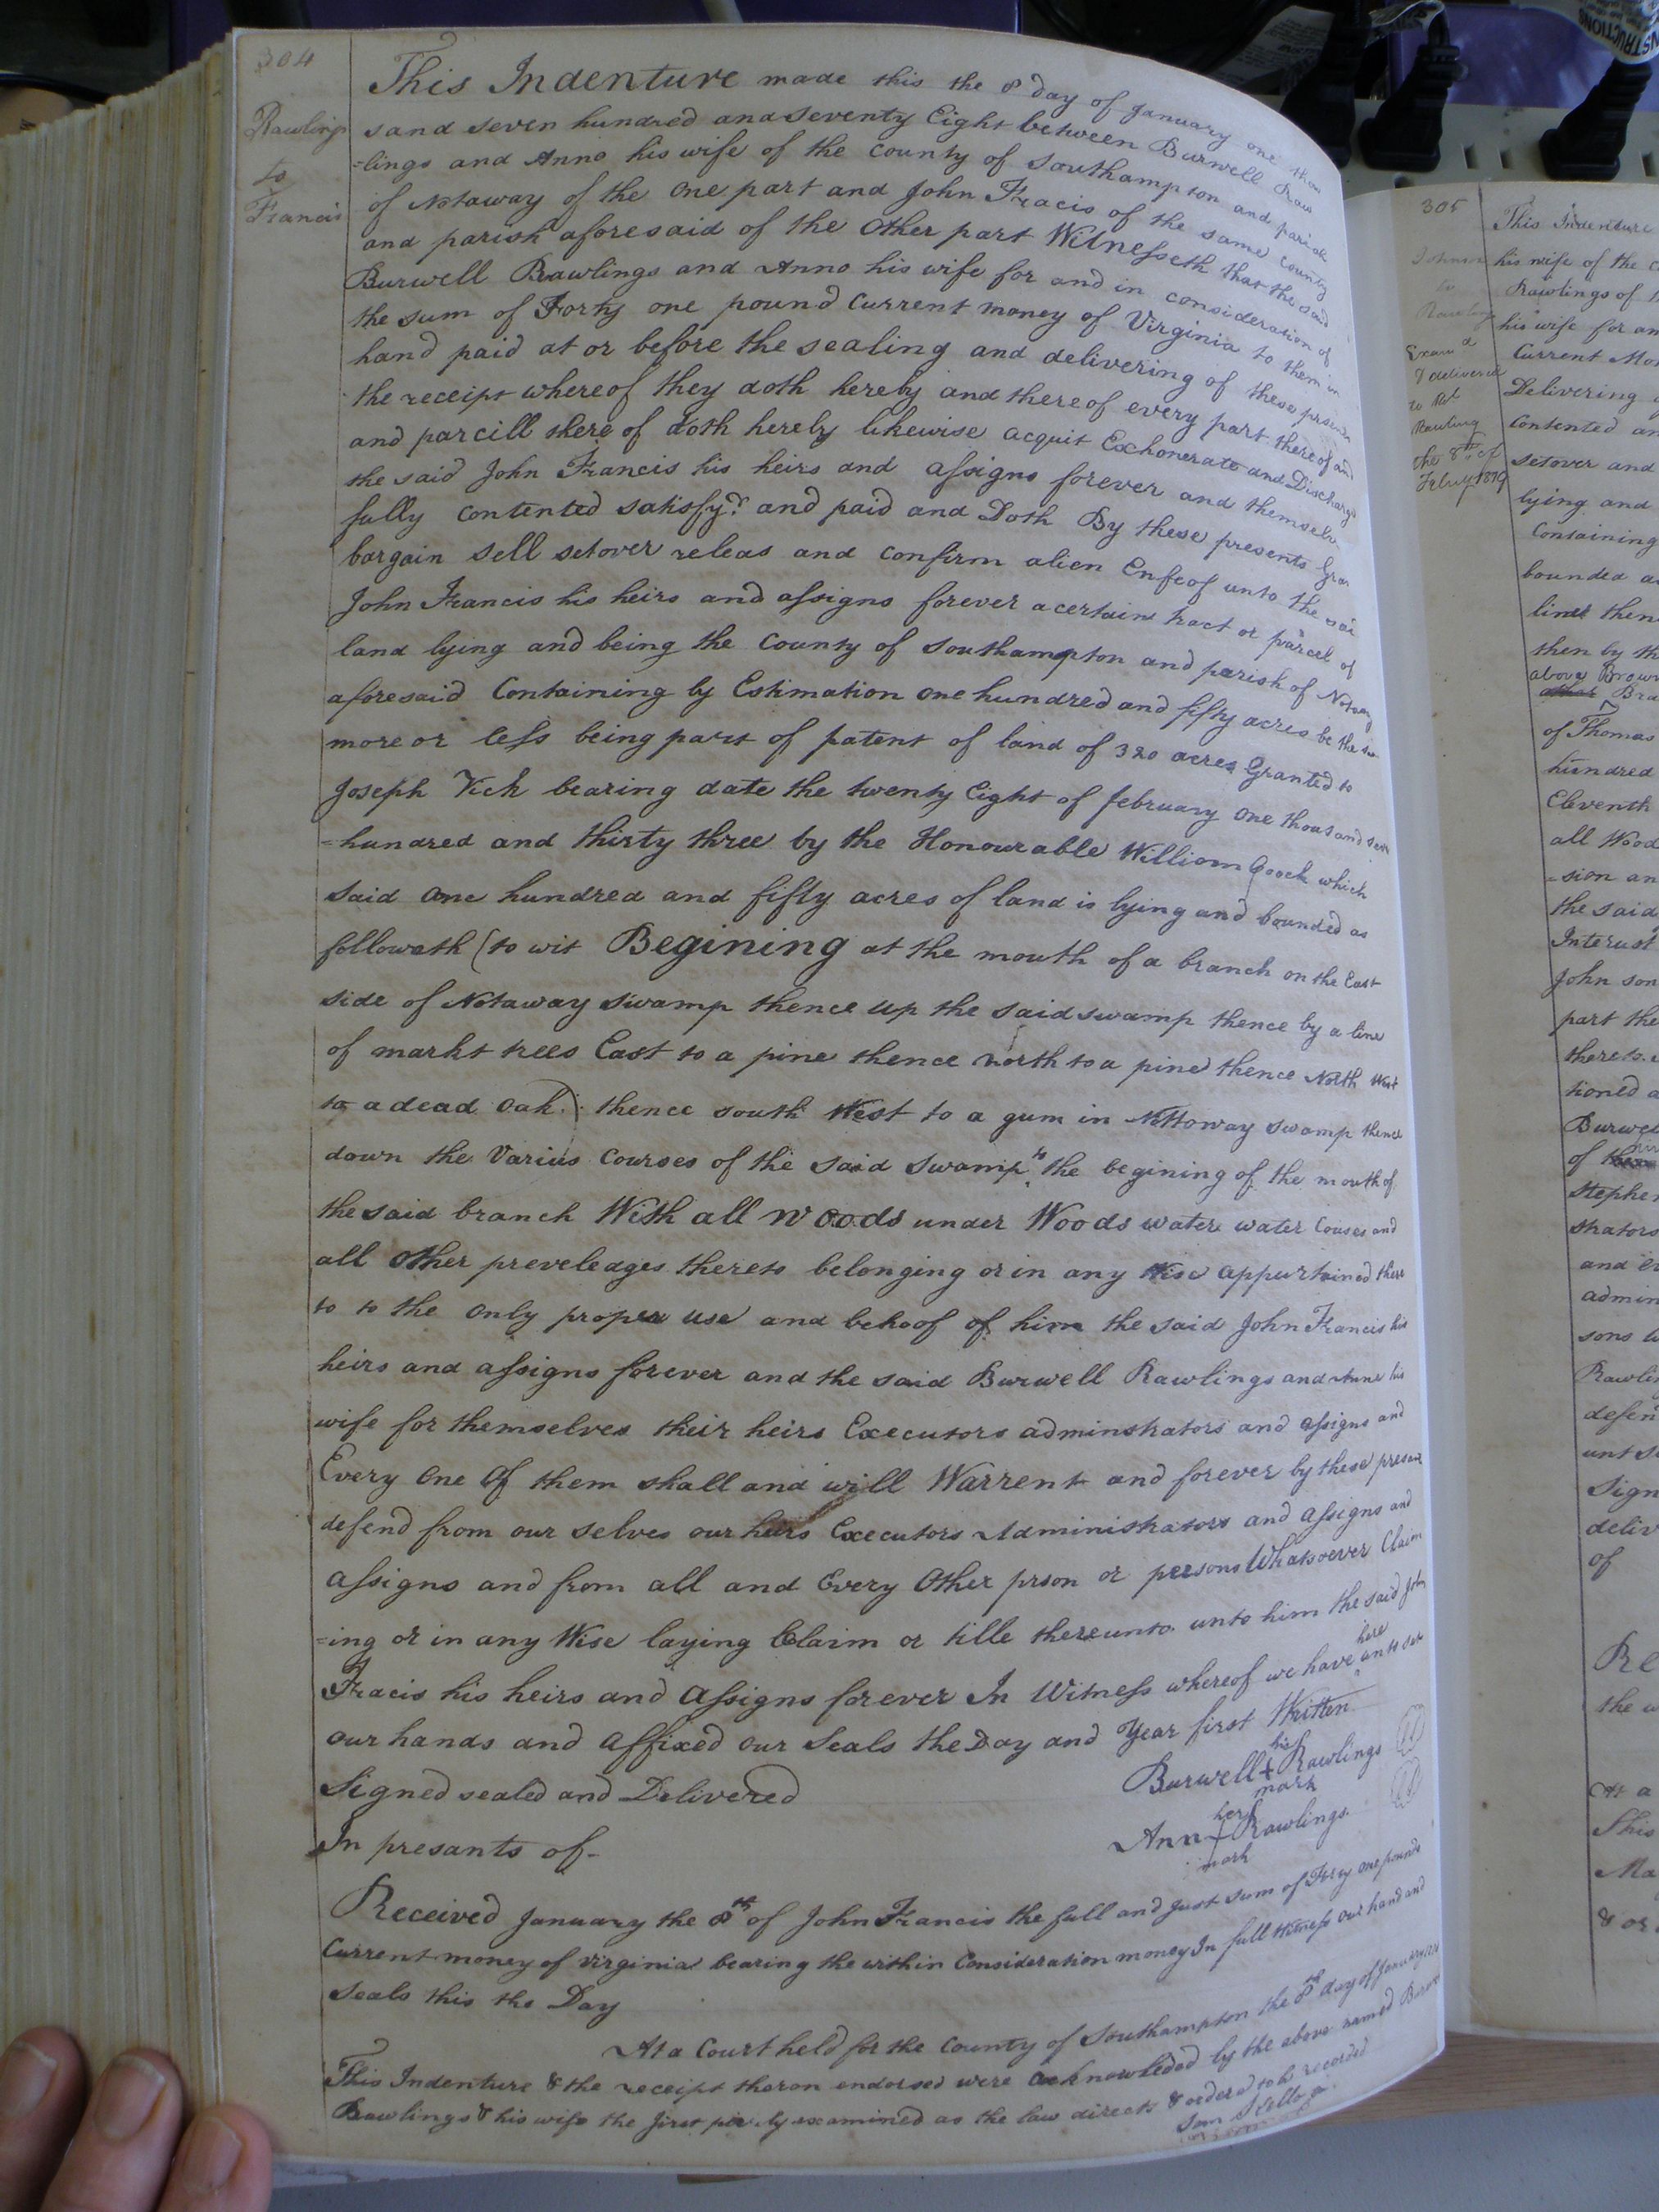 304
Rawlings
to
Francis
This Indenture made this the 8 day of January one thou
sand seven hundred and seventy Eight between Burwell Raw
=lings and Anno his wife of the county of Southampton and parish
of Notaway of the one part and John Fracis of the same county
and parish aforesaid of the other part Witnesseth that the said
Burwell Rawlings and Anno his wife for and in consideration of
the sum of Forty one pound Current money of Virginia to them in
hand paid at or before the sealing and delivering of these presents
the receipt whereof they doth hereby and thereof every part thereof and
and parcill there of doth hereby likewise acquit Exchonerate and Discharge
the said John Francis his heirs and assigns forever and themselv
fully contented satisfyd. and paid and Doth By these presents Gran
bargain sell setover releas and confirm alien Enfeof unto the sai
John Francis his heirs and assigns forever a certain tract or parcel of
land lying and being the County of Southampton and parish of Notaway
aforesaid Containing by Estimation one hundred and fifty acres be the sa
more or less being part of patent of land of 320 acres Granted to
Joseph Vick bearing date the twenty Eight of february one thousand seven
=hundred and thirty three by the Honourable William Gooch which
said one hundred and fifty acres of land is lying and bounded as
followeth (to wit Begining at the mouth of a branch on the East
side of Notaway swamp thence up the said swamp thence by a line
of markt trees East to a pine thence north to a pine thence North West
to a dead oak.) thence south West to a gum in Nottoway swamp thence
down the Varius Courses of the said swamp to the begining of the mouth of
the said branch With all woods under Woods water water Couses and
all other preveledges thereto belonging or in any Wise appurtained there
to to the only proper use and behoof of him the said John Francis his
heirs and assigns forever and the said Burwell Rawlings and Anne his
wife for themselves their heirs Executors adminstrators and assigns and
Every One Of them shall and will Warrent and forever by these presents
defend from our selves our heirs Executors Administrators and assigns and
assigns and from all and Every Other prson or persons Whatsoever Claim
=ing or in any Wise laying Claim or title thereunto unto him the said John
Fracis his heirs and Assigns forever In Witness whereof we have here unto set
our hands and affixed our Seals the Day and Year first Written
Signed sealed and Delivered
In presants of-
his
Burwell + Rawlings
mark
her
Ann + Rawlings.
mark
Received January the 8th of John Francis the full and Just Sum of Forty one pounds
Current money of Virginia bearing the within Consideration money In full Witness our hand and
Seals this the Day
At a Court held for the County of Southampton the 8th day of January
This Indenture & the receipt theron endorsed were acknowleded by the above named Burwell
Rawlings & his wife the first privily examined as the law directs & orderd to be recorded
305
Johnson
to
Rawlings
Examd
& delivered
to
Rawling
the 8th of
This Indenture
his wife of the
Rawlings of
his wife for an
Current Mo
Delivering
Contented an
setover and
lying and
Containing
bounded a
lines then
then by th
above Brown
of Thomas
hundred
Eleventh
all Wood
=sion an
the said
Interust
John son
part the
thereto
tioned a
Burwe
of
Stephe
strators
and
admin
sons
Rawli
defen
unto
Sign
deliv
of
Re
the w
At a
This
Ma
& or